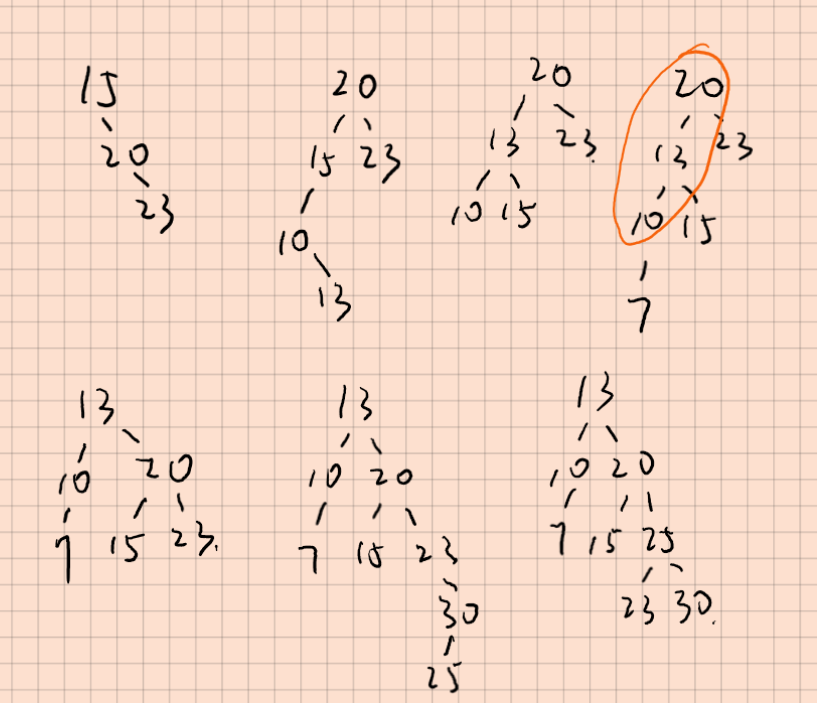 15
20
23
20
15 23
10
13
20
13 23
10 15
20
13 23
10 15
7
13
10 20
7 15 23
13
10 20
7 15 23
30
25
13
10 20
7 15 25
23 30